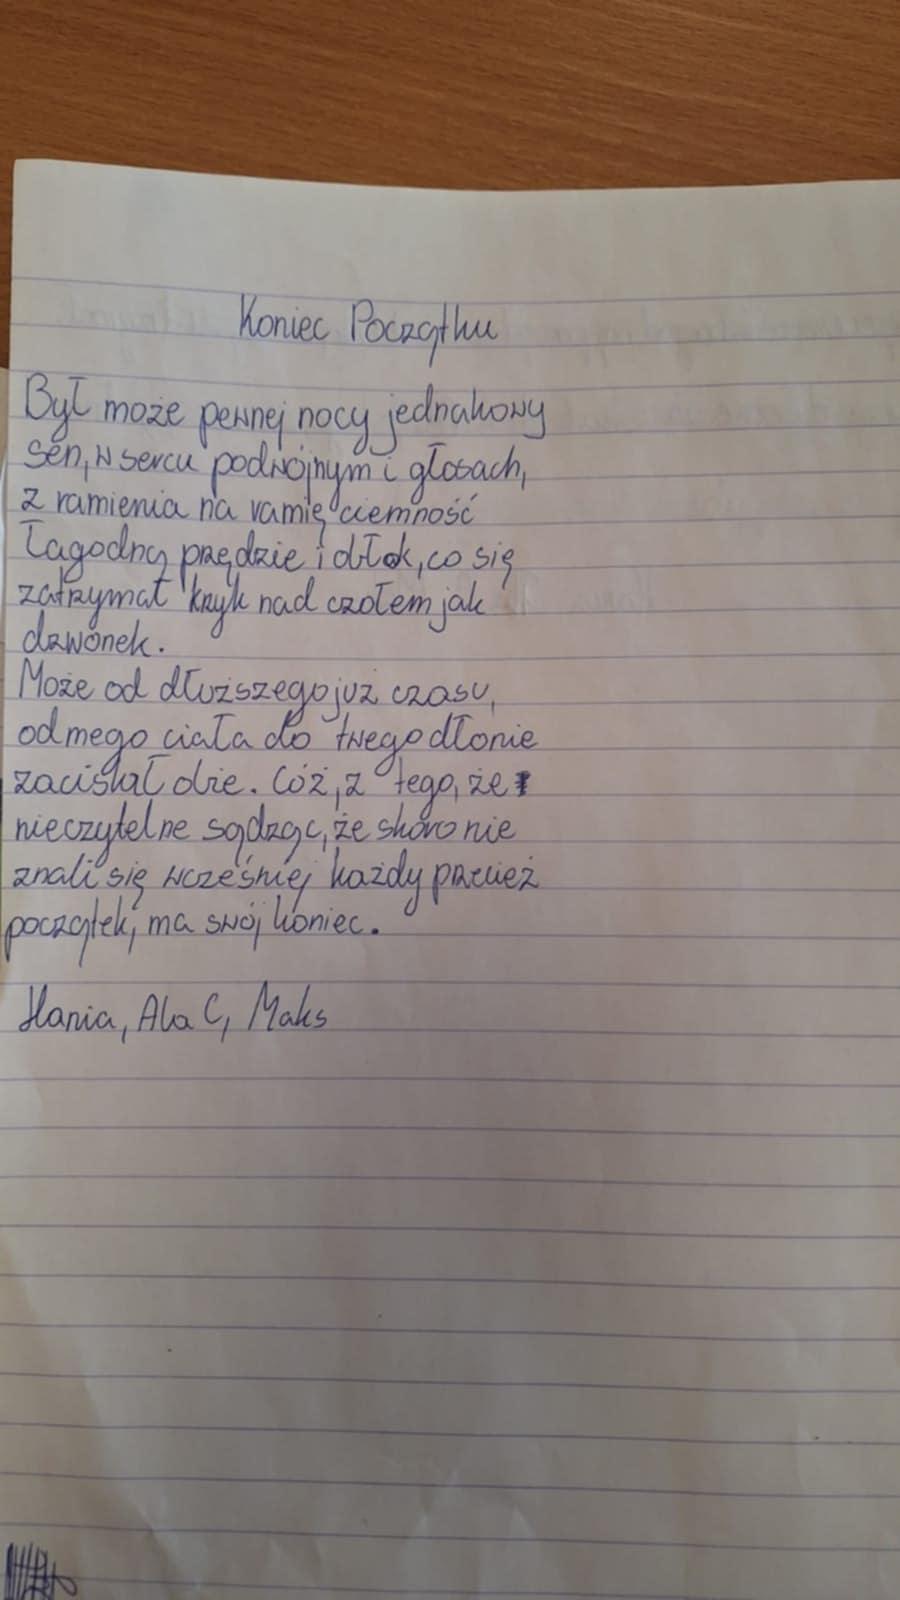 Koniec Początku
Był może pewnej nocy jednakowy
sen, w sercu podwójnym i głosach,
z ramienia na ramię ciemność
łagodną przędzie i dłok, co się
zatrzymał kryk nad czołem jak
dzwonek.
Może od dłuższego już czasu,
od mego ciała do twego dłonie
zaciskał dzie. Cóż, z tego, że
nieczytelne sądząc, że skoro nie
znali się wcześniej każdy przecież
początek, ma swój koniec.
Hania, Ala C, Maks